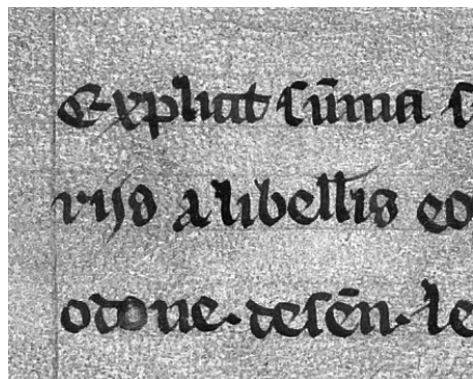 Explicit sūma
rijs a libellis eo
odone. desēn. le